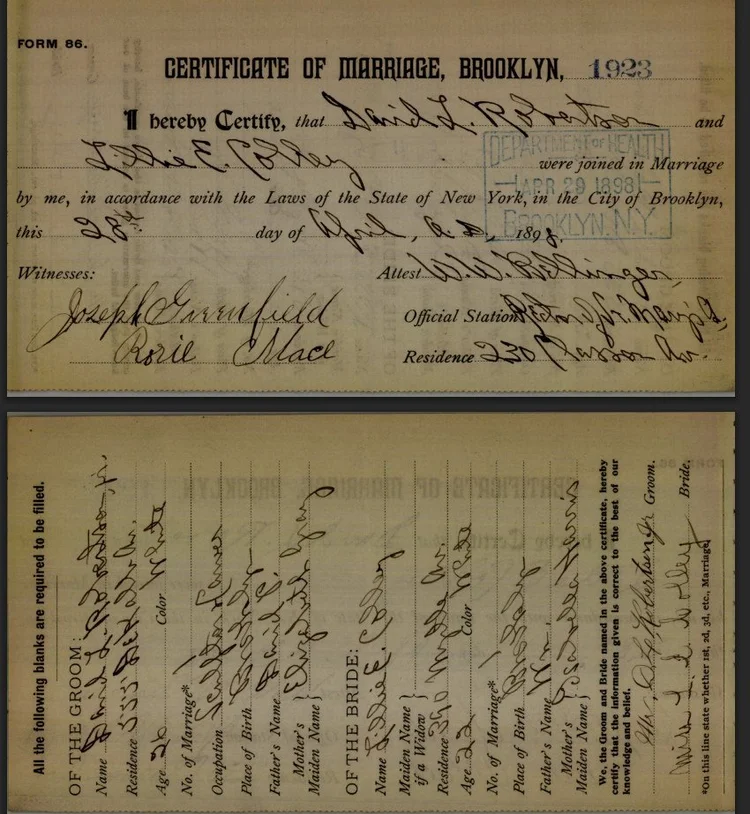 FORM 86.
CERTIFICATE OF MARRIAGE, BROOKLYN, 1923
I hereby Certify, that David L. Robertson and
Lillie E. Colley were joined in Marriage
DEPARTMENT OF HEALTH
APR 29 1898
BROOKLYN. N.Y.
by me, in accordance with the Laws of the State of New York, in the City of Brooklyn,
this 28th day of April, A.D., 1898.
Witnesses: Attest W. W. Bellinger,
Joseph Greenfield Official Station Rector of St. Mary's
Rosie Mace Residence 230 Classon Av.
All the following blanks are required to be filled.
OF THE GROOM:
Name David L. Robertson, Jr.
Residence Av.
Age 26 Color White
No. of Marriage* 1
Occupation
Place of Birth Brooklyn
Father's Name David L.
Mother's Maiden Name } Elizabeth
OF THE BRIDE:
Name Lillie E. Colley
Maiden Name if a Widow }
Residence Av.
Age 22 Color White
No. of Marriage* 1
Place of Birth Brooklyn
Father's Name Wm.
Mother's Maiden Name } Harris
We, the Groom and Bride named in the above certificate, hereby
certify that the information given is correct to the best of our
knowledge and belief.
Mr. D. L. Robertson Jr Groom.
Miss L. E. Colley Bride.
*On this line state whether 1st, 2d, 3d, etc., Marriage.